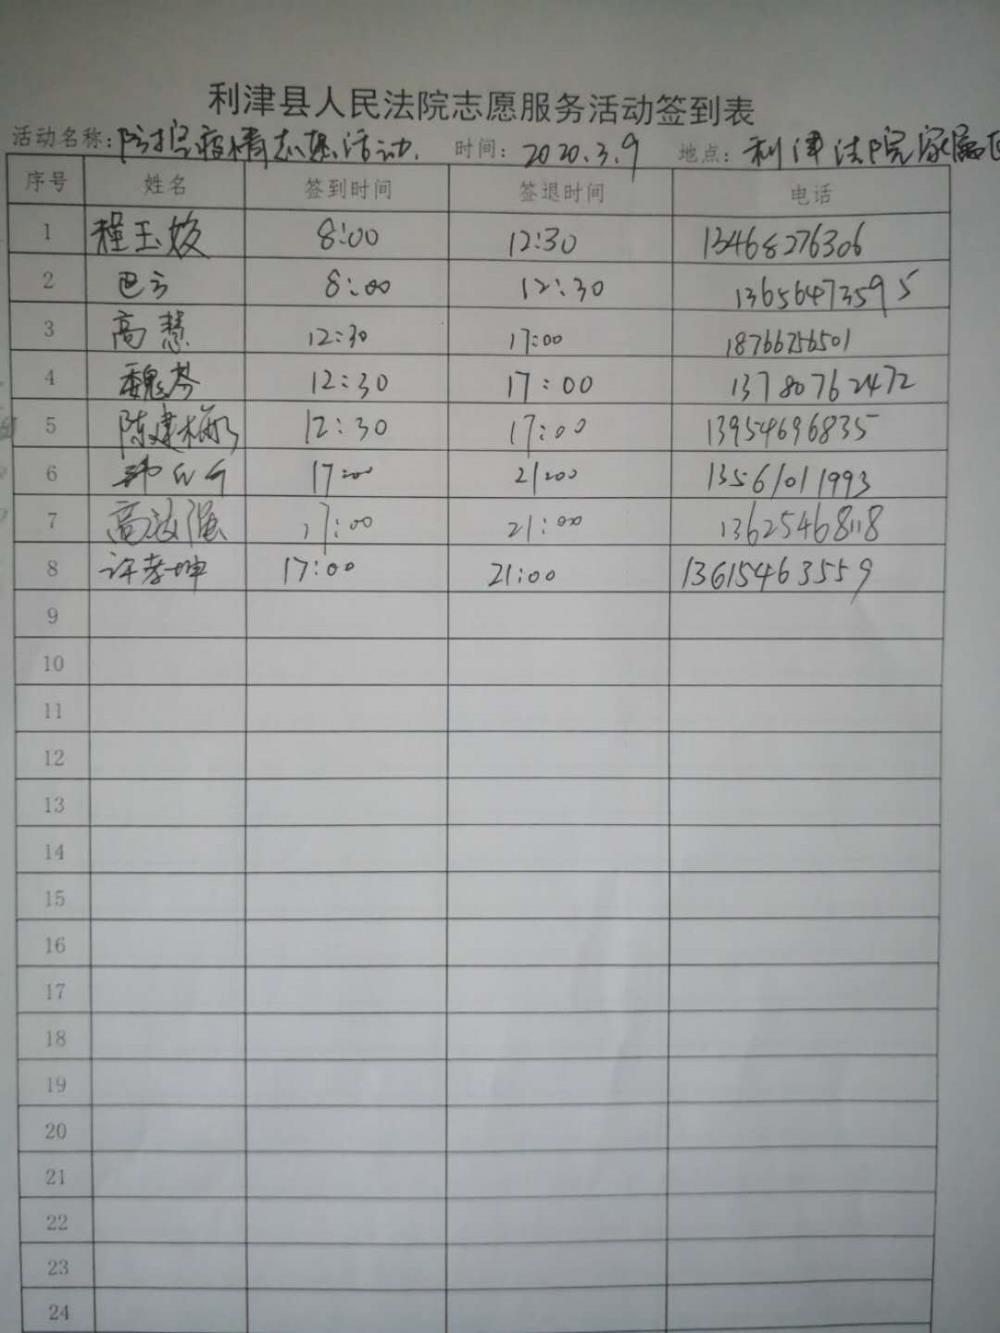 利津县人民法院志愿服务活动签到表
活动名称:防控疫情志愿活动. 时间: 2020.3.9 地点: 利津法院家属区
序号 姓名 签到时间 签退时间 电话
1 程玉姣 8:00 12:30 13468276306
2 巴方 8:00 12:30 13656473595
3 高慧 12:30 17:00 18766756501
4 魏芩 12:30 17:00 13780762472
5 陈建梅 12:30 17:00 13954696835
6 17:00 21:00 13561011993
7 高 强 17:00 21:00 13625468118
8 许孝坤 17:00 21:00 13615463559
9
10
11
12
13
14
15
16
17
18
19
20
21
22
23
24